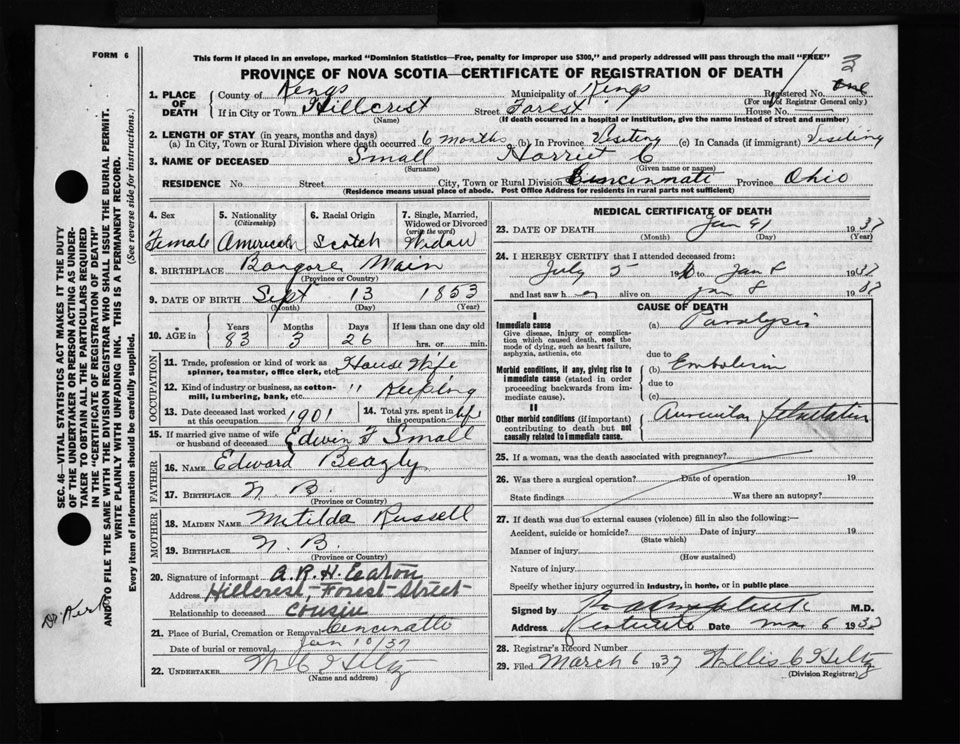 FORM 6
This form if placed in an envelope, marked "Dominion Statistics—Free, penalty for improper use $300," and properly addressed will pass through the mail "FREE"
PROVINCE OF NOVA SCOTIA—CERTIFICATE OF REGISTRATION OF DEATH
1. PLACE OF DEATH County of Kings Municipality of Kings Registered No.
(For use of Registrar General only)
If in City or Town Hillcrest Street Forest House No.
(Name) (If death occurred in a hospital or institution, give the name instead of street and number)
2. LENGTH OF STAY (in years, months and days)
(a) In City, Town or Rural Division where death occurred 6 months (b) In Province Visiting (c) In Canada (if immigrant) Visiting
3. NAME OF DECEASED Small Harriet C
(Surname) (Given name or names)
RESIDENCE No. Street City, Town or Rural Division Cincinnati Province Ohio
(Residence means usual place of abode. Post Office Address for residents in rural parts not sufficient)
SEC. 46—VITAL STATISTICS ACT MAKES IT THE DUTY
OF THE UNDERTAKER OR PERSON ACTING AS UNDER-
TAKER TO OBTAIN ALL THE PARTICULARS REQUIRED
IN THE "CERTIFICATE OF REGISTRATION OF DEATH"
AND TO FILE THE SAME WITH THE DIVISION REGISTRAR WHO SHALL ISSUE THE BURIAL PERMIT.
WRITE PLAINLY WITH UNFADING INK. THIS IS A PERMANENT RECORD.
Every item of information should be carefully supplied. (See reverse side for instructions.)
4. Sex Female
5. Nationality (Citizenship) American
6. Racial Origin Scotch
7. Single, Married, Widowed or Divorced (write the word) Widow
8. BIRTHPLACE Bangore Main
(Province or Country)
9. DATE OF BIRTH Sept 13 1853
(Month) (Day) (Year)
10. AGE in Years Months Days If less than one day old
83 3 26 hrs. or min.
OCCUPATION
11. Trade, profession or kind of work as spinner, teamster, office clerk, etc. House Wife
12. Kind of industry or business, as cotton-mill, lumbering, bank, etc. " Keeping
13. Date deceased last worked at this occupation 1901
14. Total yrs. spent in this occupation life
15. If married give name of wife or husband of deceased Edwin F Small
FATHER
16. NAME Edward Beagly
17. BIRTHPLACE N. B.
(Province or Country)
MOTHER
18. MAIDEN NAME Matilda Russell
19. BIRTHPLACE N. B.
(Province or Country)
20. Signature of informant A. R. H. Eaton
Address Hillcrest, Forest Street
Relationship to deceased Cousin
21. Place of Burial, Cremation or Removal Cincinatto
Date of burial or removal Jan 10/37
22. UNDERTAKER W C Hiltz
(Name and address)
MEDICAL CERTIFICATE OF DEATH
23. DATE OF DEATH Jan 9 1937
(Month) (Day) (Year)
24. I HEREBY CERTIFY that I attended deceased from:
July 5 19 to Jan 8 1937
and last saw h alive on Jan 8 1937
CAUSE OF DEATH
I
Immediate cause (a) Paralysis
Give disease, injury or complication which caused death, not the mode of dying, such as heart failure, asphyxia, asthenia, etc
due to
Morbid conditions, if any, giving rise to immediate cause (stated in order proceeding backwards from immediate cause). (b) Embolism
due to
(c)
II
Other morbid conditions (if important) contributing to death but not causally related to immediate cause. Auricular
25. If a woman, was the death associated with pregnancy?
26. Was there a surgical operation? Date of operation 19
State findings Was there an autopsy?
27. If death was due to external causes (violence) fill in also the following:—
Accident, suicide or homicide? Date of injury 19
(State which)
Manner of injury
(How sustained)
Nature of injury
Specify whether injury occurred in industry, in home, or in public place
Signed by M.D.
Address Date 6 1937
28. Registrar's Record Number
29. Filed March 6 1937 Willis C Hiltz
(Division Registrar)